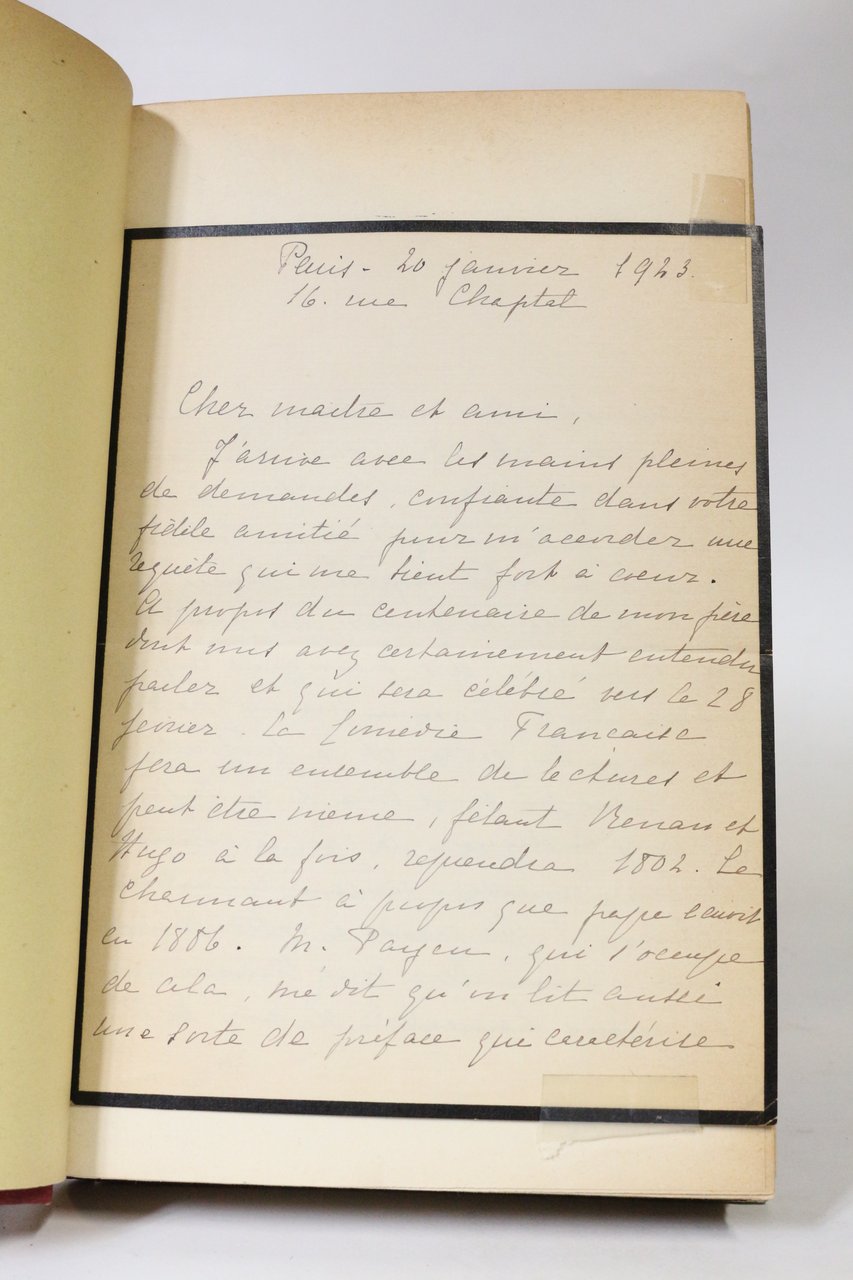 Paris - 20 janvier 1923.
16. rue Chaptal
Cher maitre et ami,
J'arrive avec les mains pleines
de demandes, confiante dans votre
fidèle amitié pour m'accorder une
requête qui me tient fort à coeur.
A propos du centenaire de mon père
dont vous avez certainement entendu
parler et qui sera célébré vers le 28
février. La Comédie Francaise
fera un ensemble de lectures et
peut être même, fêtant Renan et
Hugo à la fois, reprendra 1802. Le
charmant à propos que papa écrivit
en 1886. M. Payen, qui s'occupe
de cela, me dit qu'on lit aussi
une sorte de préface qui caractérise